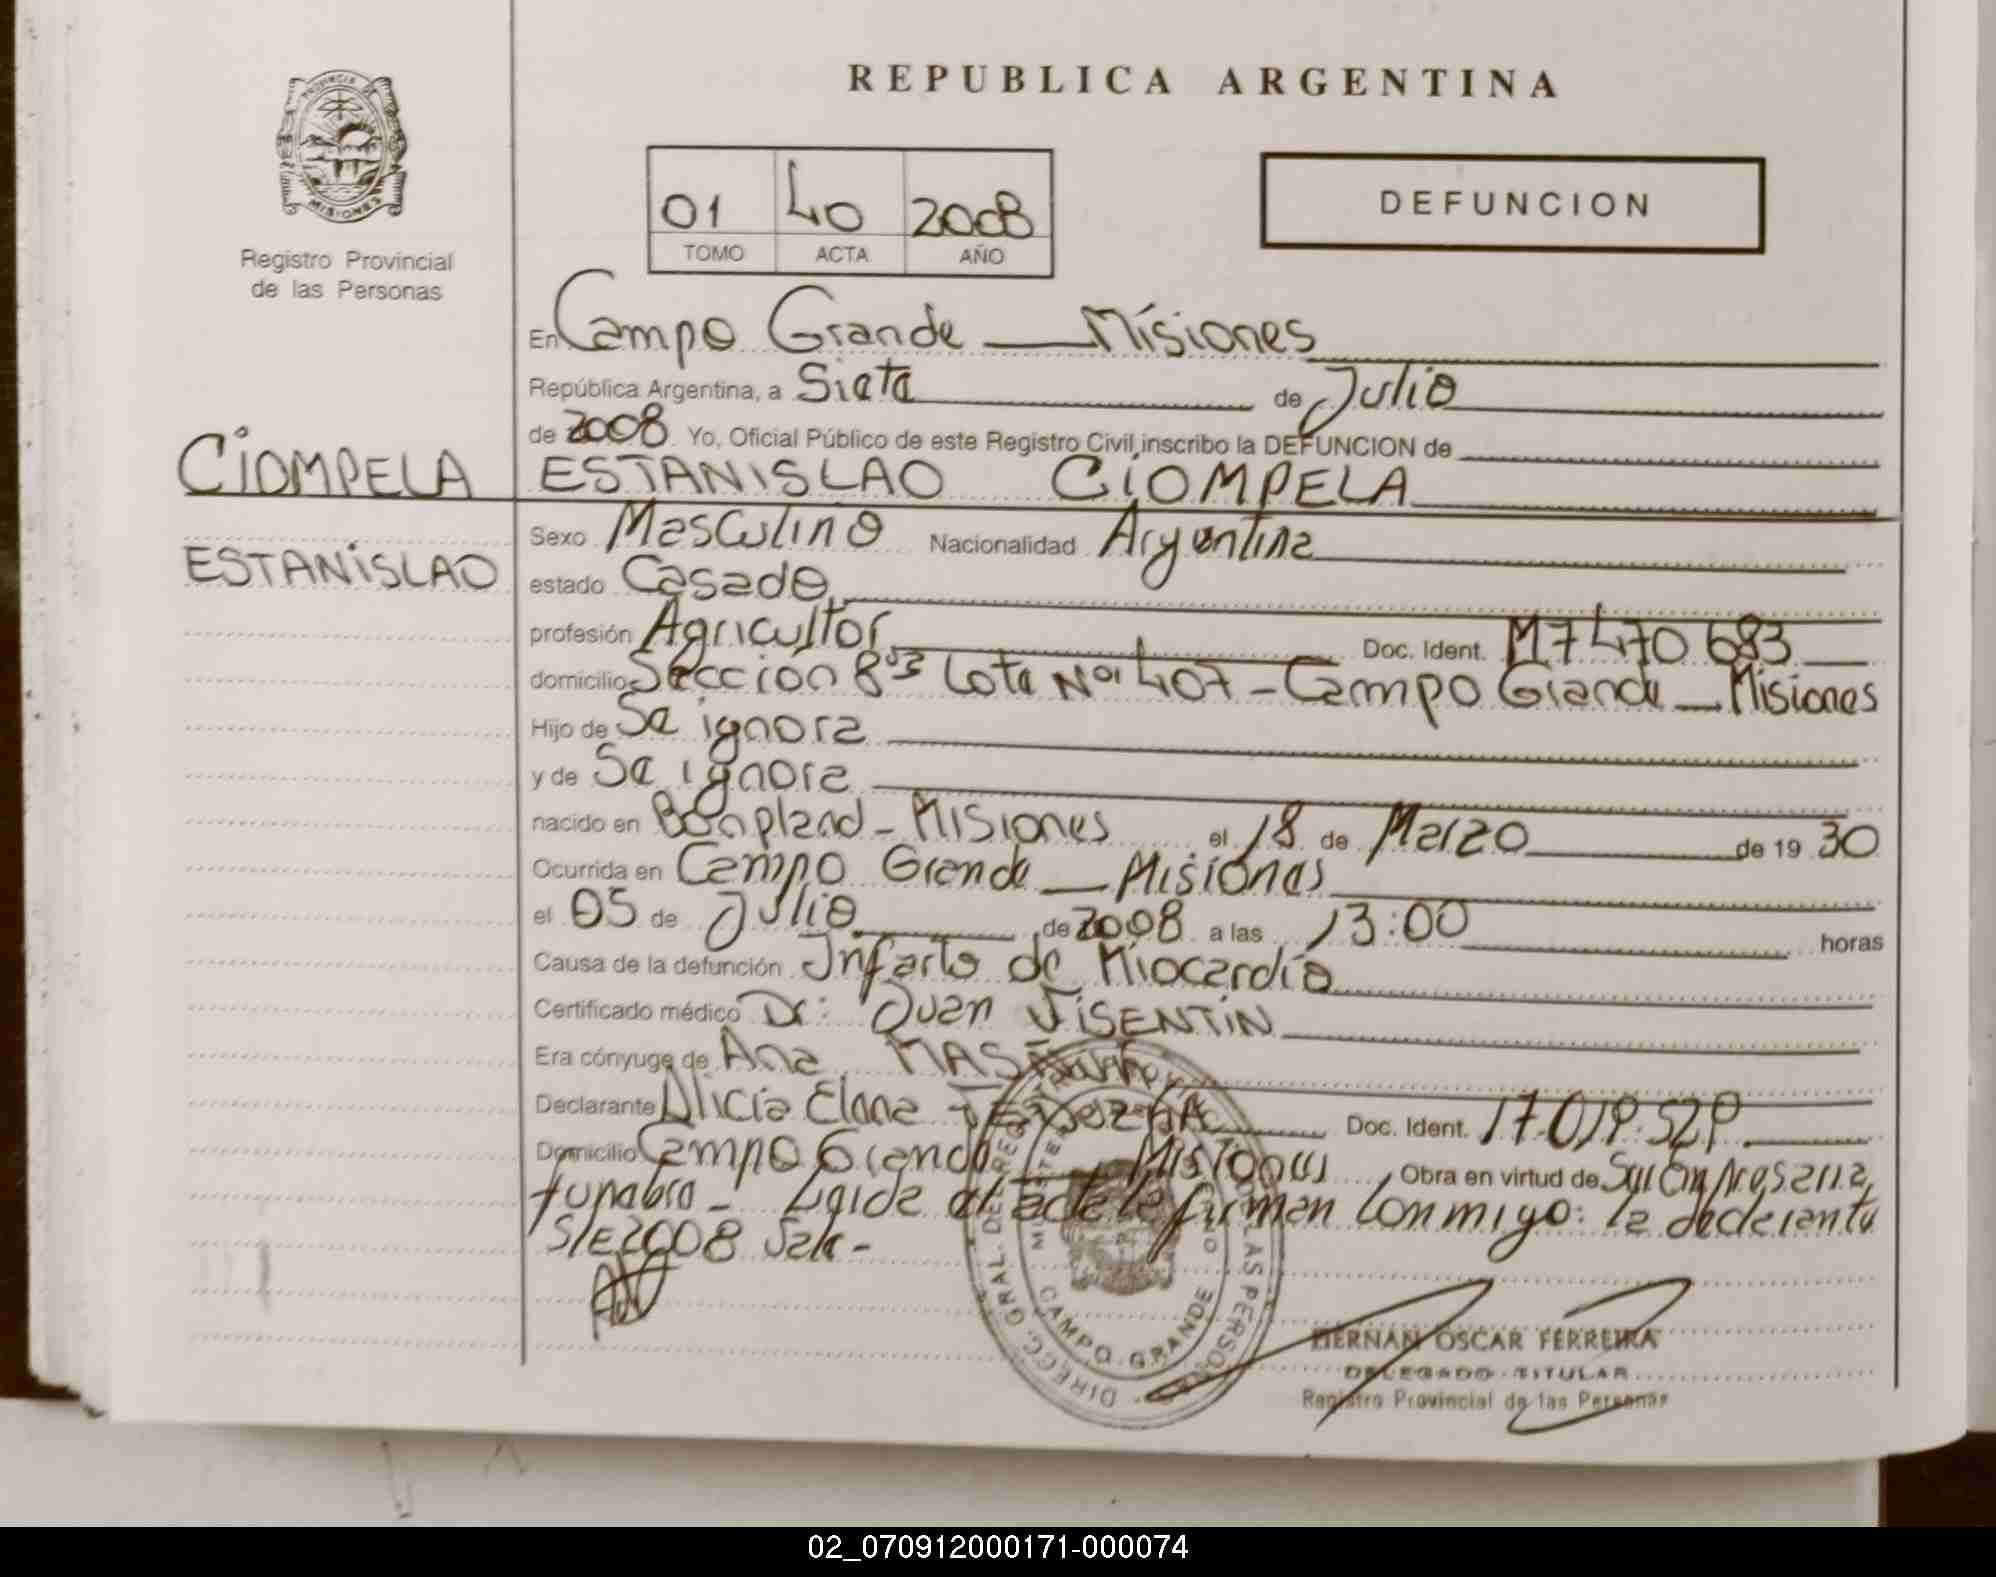 REPUBLICA ARGENTINA
PROVINCIA DE
MISIONES
Registro Provincial
de las Personas
01 40 2008
TOMO ACTA AÑO
DEFUNCION
En Campo Grande — Misiones
República Argentina, a Siete de Julio
de 2008 Yo, Oficial Público de este Registro Civil, inscribo la DEFUNCION de
CIOMPELA ESTANISLAO CIOMPELA
ESTANISLAO
Sexo Masculino Nacionalidad Argentina
estado Casado
profesión Agricultor Doc. Ident. M7470683
domicilio Sección 8va Lote Nº 407 - Campo Grande — Misiones
Hijo de Se ignora
y de Se ignora
nacido en Bonpland - Misiones el 18 de Marzo de 19 30
Ocurrida en Campo Grande — Misiones
el 05 de Julio de 2008 a las 13:00 horas
Causa de la defunción Infarto de Miocardio
Certificado médico Dr: Juan VISENTIN
Era cónyuge de Ana
Declarante Alicia Elena Doc. Ident.
Domicilio Campo Grande Misiones Obra en virtud de Ser Empresaria
funebre - Leida el acta la firman conmigo: la declarante
S/E 2008 Vale -
CAMPO GRANDE
HERNAN OSCAR FERREIRA
DELEGADO TITULAR
Registro Provincial de las Personas
02_070912000171-000074